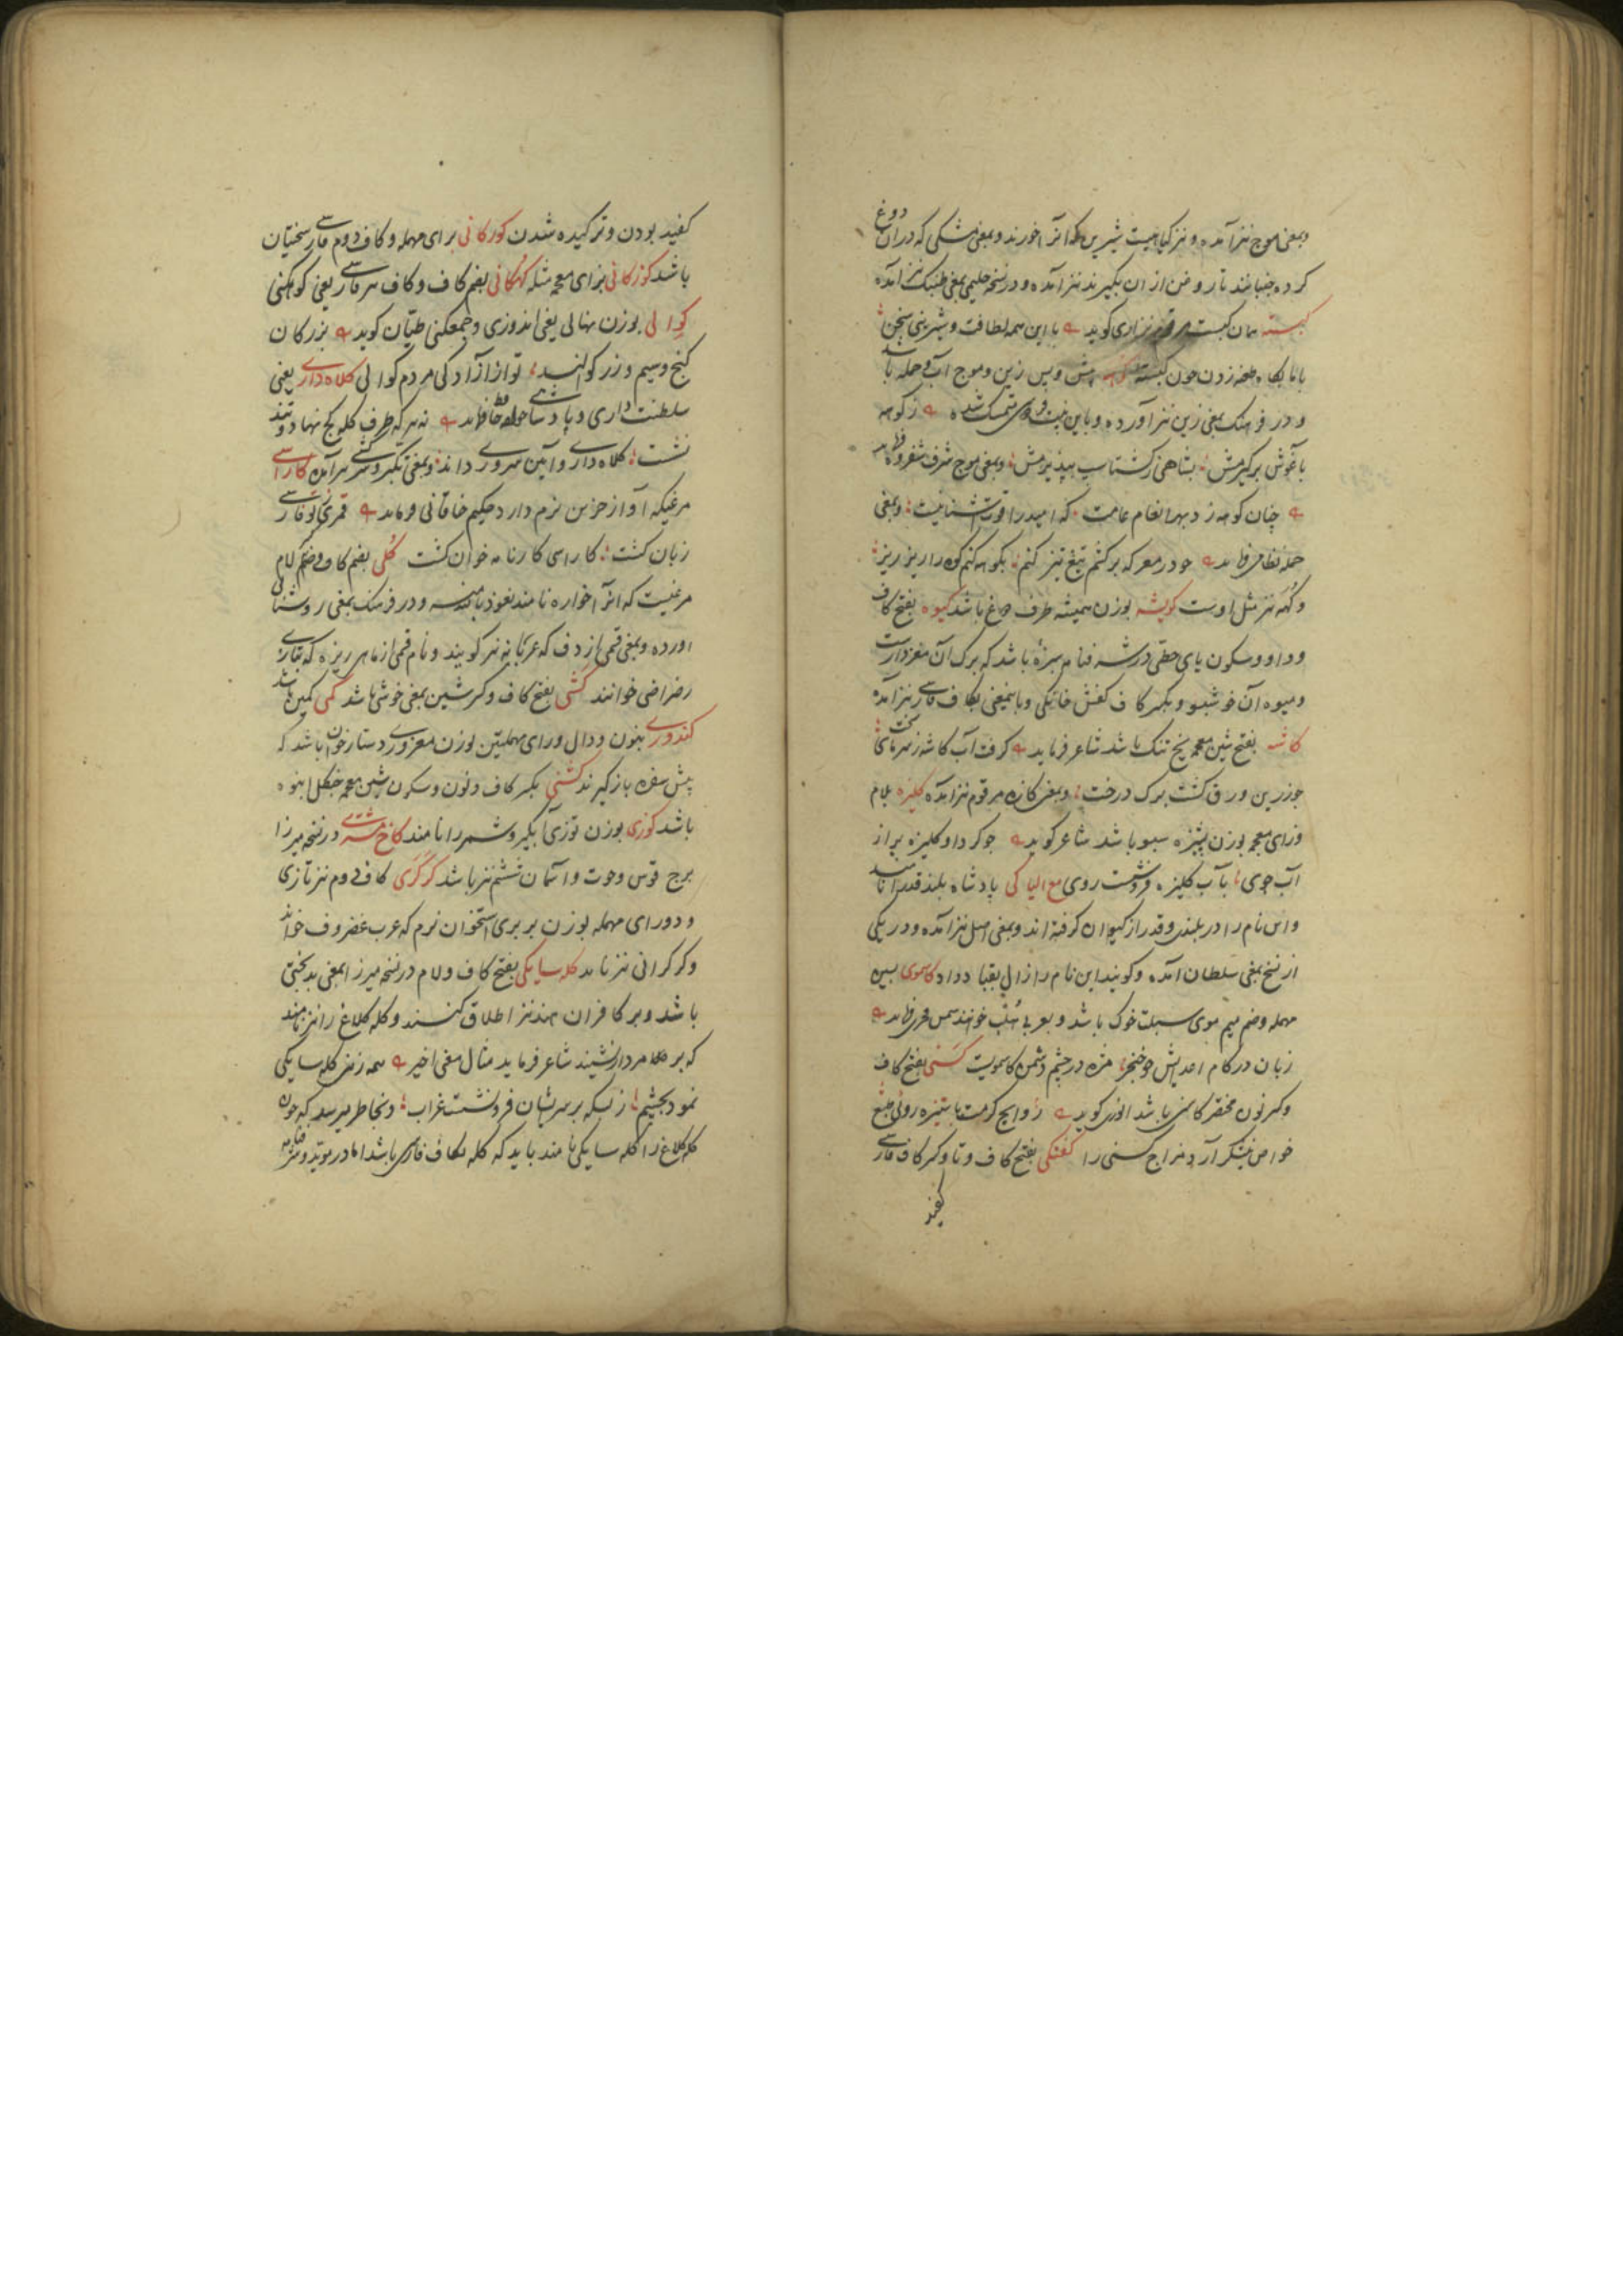 وبمعنی موج نیز آمده و نیز کیاهیست شیرین که آنرا خورند و بمعنی مشکی که در آن دوغ
کرده جنبانند تا روغن از ان بگیرند نیز آمده و در نسخه حلیمی بمعنی نیز آمده
کبسته همان کبست نزاری کوید با این همه لطافت و شیرینی سخن
طعنه زدن چون کبسته پیش و پس زین و موج آب و حمله باشد
و در فرهنگ بمعنی زین نیز آورده و باین بیت متمسک شده ز کوهه
باغوش برکیرمش بشاهی ز کشتاسب بپذیرمش وبمعنی موج شرف شفروه
چنان کوهه زد بهر انعام عامت که امید را قوت آشنا نیست وبمعنی
حمله نظامی فرماید چو در معرکه برکشم تیغ تیز بکوهه کنم کوه را ریز ریز
و کهه نیز مثل اوست کویشه بوزن همیشه ظرف باشد کیوه بفتح کاف
و واو و سکون یای حطی سبزه باشد که برک آن
و میوه آن خوشبو و بکسر کاف کفش خانکی و باینمعنی بکاف فارسی نیز آمده
کاشه بفتح شین معجمه یخ تنک باشد شاعر فرماید کرفت آب کاشه ز سرمای سخت
چو زرین ورق کشت برک درخت وبمعنی کازه مرقوم نیز آمده کلیزه بلام
وزای معجمه بوزن سبو باشد شاعر کوید چو کرد او کلیزه پر از
آب جوی بآب کلیزه فروشست روی مع الیا کی پادشاه بلند قدر را نامند
و این نام را در بلندی و قدر از کیوان کرفته اند وبمعنی اصل نیز آمده و در یکی
از نسخ بمعنی سلطان آمده و کویند این نام را زال بقباد داد کاسموی بسین
مهمله وضم میم موی سبلت خوک باشد و بعربی خوانند شمس فخری فرماید
زبان در کام اندیش چو خنجر مژه در چشم دشمن کاسمویت کسنی بفتح کاف
وکسر نون مختصر کاسنی باشد انوری کوید روایح کرمت با ستیزه روئی طبع
خواص نیشکر آرد مزاج کسنی را کفتکی بفتح کاف و تا وکسر کاف فارسی
کفید
کفید بودن و ترکیده شدن کورکانی برای مهمله و کاف دوم فارسی سختیان
باشد کوزکانی بزای معجمه مثله کهکانی بضم کاف و کاف فارسی یعنی کوهکنی
کوالی بوزن نهالی یعنی اندوزی و جمعکنی طیان کوید بزرکان
کنج و سیم و زر کوالند تو از آزادکی مردم کوالی کلاه داری یعنی
سلطنت داری و پادشاهی خواجه حافظ فرماید نه هر که طرف کله کج نهاد و تند
نشست کلاه داری و آیین سروری داند وبمعنی تکبر و سرکشی نیز آمده کاراسی
مرغیکه آواز حزین نرم دارد حکیم خاقانی فرماید قمری فارسی
زبان کشت کاراسی کارنامه خوان کشت کلی بضم کاف و ضم لام
مرضیست که آنرا خواره نامند نعوذ بالله منه و در فرهنک بمعنی روستائی
آورده وبمعنی قسمی از دف که عربیان نیز کویند و نام قسمی از ماهی ریزه که بتازی
رضراضی خوانند کشی بفتح کاف وکسر شین بمعنی خوشی باشد کمی کمین باشد
کندوری بنون و دال و رای مهملتین بوزن مغروری دستارخوان باشد که
پیش سفره باز کیرند کشنی بکسر کاف و نون و سکون شین معجمه جنکل انبوه
باشد کوزی بوزن توزی آبکیر و شمر را نامند کاخ مشتری در نسخه میرزا
برج قوس و حوت و آسمان ششم نیز باشد کرکری کاف دوم نیز تازی
و دو رای مهمله بوزن بربری استخوان نرم که عرب غضروف خواند
وکرکرانی نیز نامند کله سایکی بفتح کاف و لام در نسخه میرزا بمعنی بدبختی
باشد و بر کافران هند نیز اطلاق کنند و کله کلاغ را نیز نامند
که بر مردار نشیند شاعر فرماید مثال معنی اخیر همه زمین کله سایکی
نمود بچشم ز بسکه بر سرشان فرو نشست غراب و بخاطر میرسد که چون
کله کلاغ را کله سایکی نامند باید که کله بکاف فارسی باشد اما در موید و شرفنامه